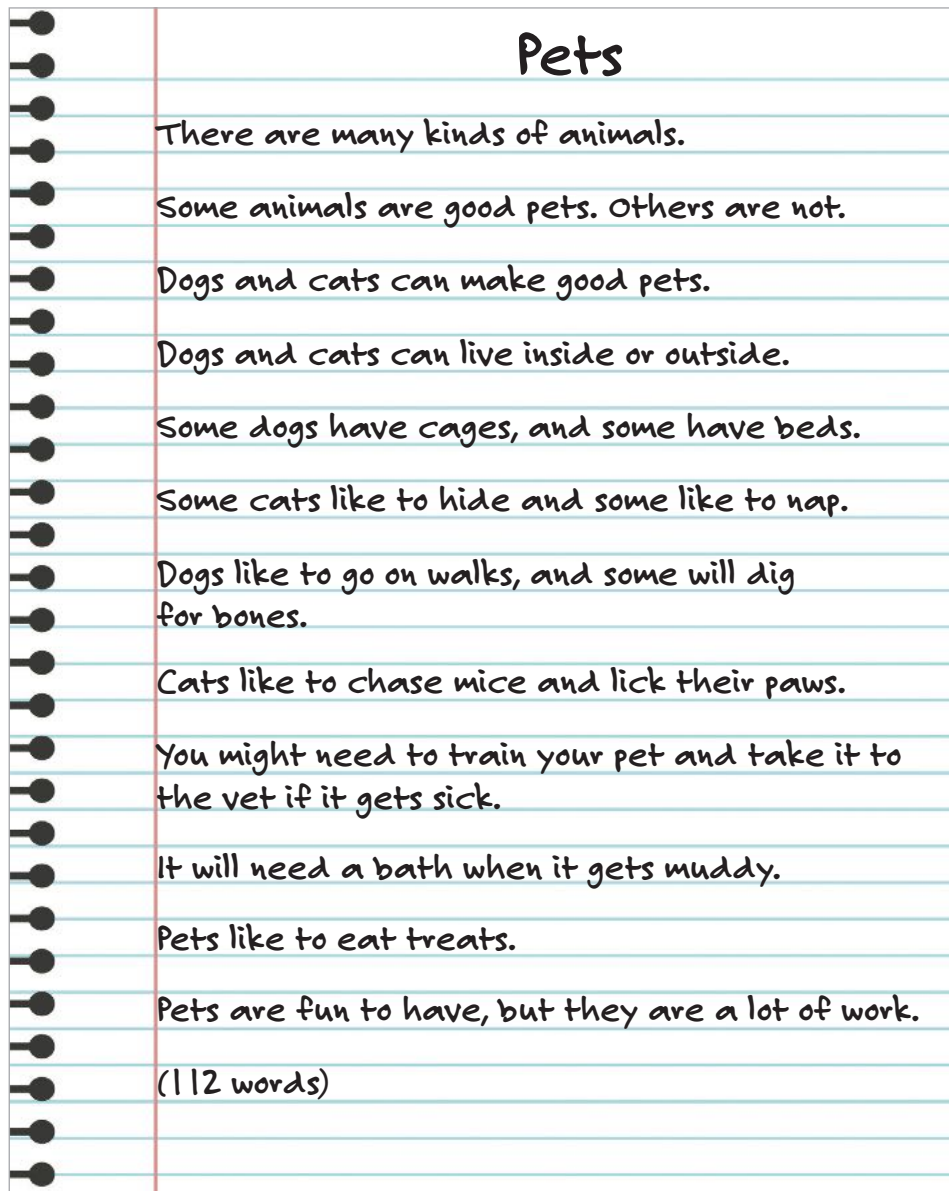 Pets
There are many kinds of animals.
Some animals are good pets. Others are not.
Dogs and cats can make good pets.
Dogs and cats can live inside or outside.
Some dogs have cages, and some have beds.
Some cats like to hide and some like to nap.
Dogs like to go on walks, and some will dig
for bones.
Cats like to chase mice and lick their paws.
You might need to train your pet and take it to
the vet if it gets sick.
It will need a bath when it gets muddy.
Pets like to eat treats.
Pets are fun to have, but they are a lot of work.
(112 words)